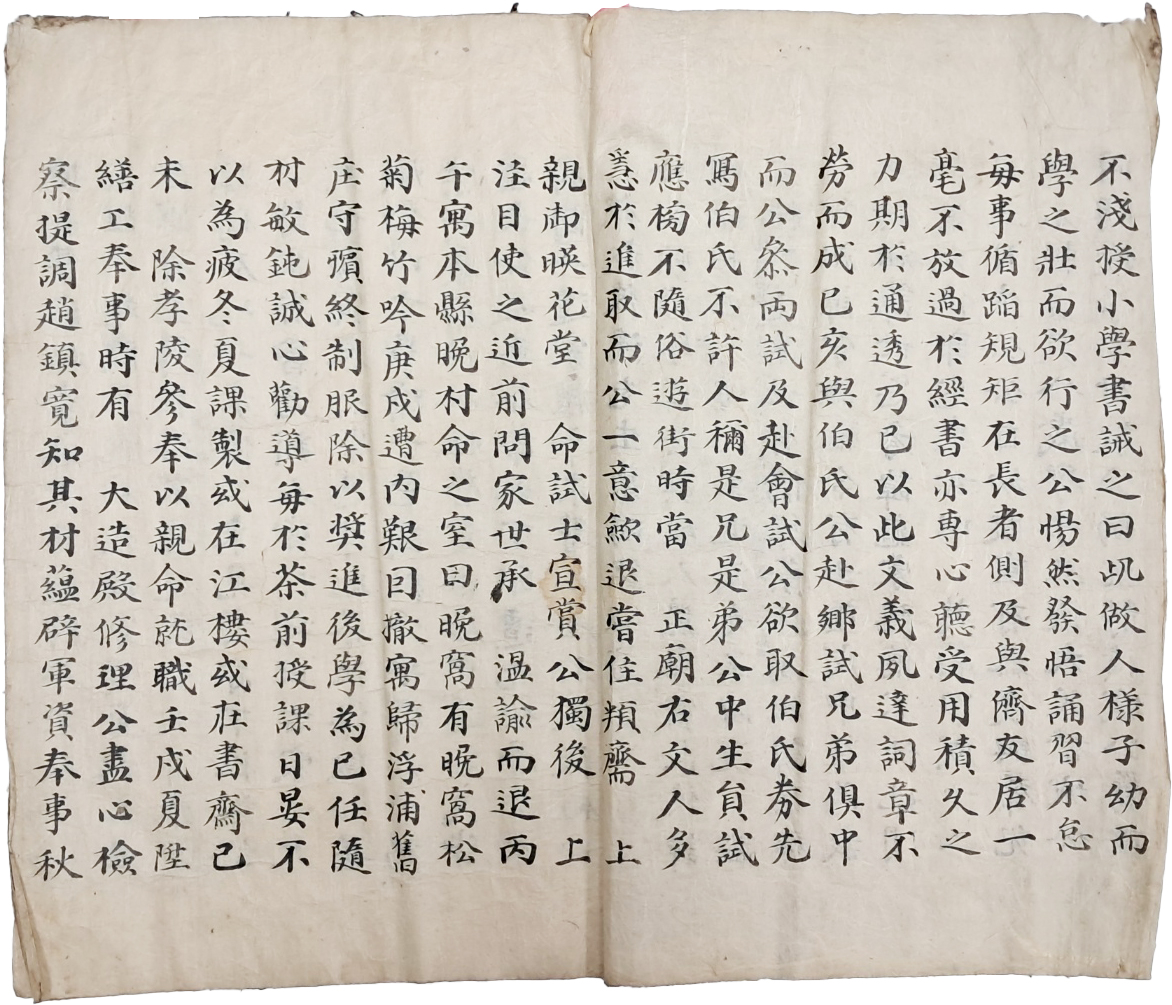 不淺授小學書誡之曰此做人樣子幼而
學之壯而欲行之公惕然發悟誦習不怠
每事循蹈規矩在長者側及與儕友居一
毫不放過於經書亦專心聽受用積久之
力期於通透乃已以此文義夙達詞章不
勞而成己亥與伯氏公赴鄉試兄弟俱中
而公叅両試及赴會試公欲取伯氏券先
寫伯氏不許人稱是兄是弟公中生貟試
應榜不隨俗遊街時當 正廟右文人多
急於進取而公一意歛退嘗住頖齋 上
親御暎花堂 命試士宣賞公獨後 上
注目使之近前問家世承 溫諭而退丙
午寓本縣晚村命之室曰晚窩有晚窩松
菊梅竹吟庚戌遭內艱曰撤寓歸浮浦舊
庄守殯終制服除以奬進後學為己任隨
材敏鈍誠心勸導每於茶前授課日晏不
以為疲冬夏課製或在江樓或在書齋己
未 除孝陵參奉以親命就職壬戌夏陞
繕工奉事時有 大造殿修理公盡心檢
察提調趙鎮寬知其材蘊辟軍資奉事秋